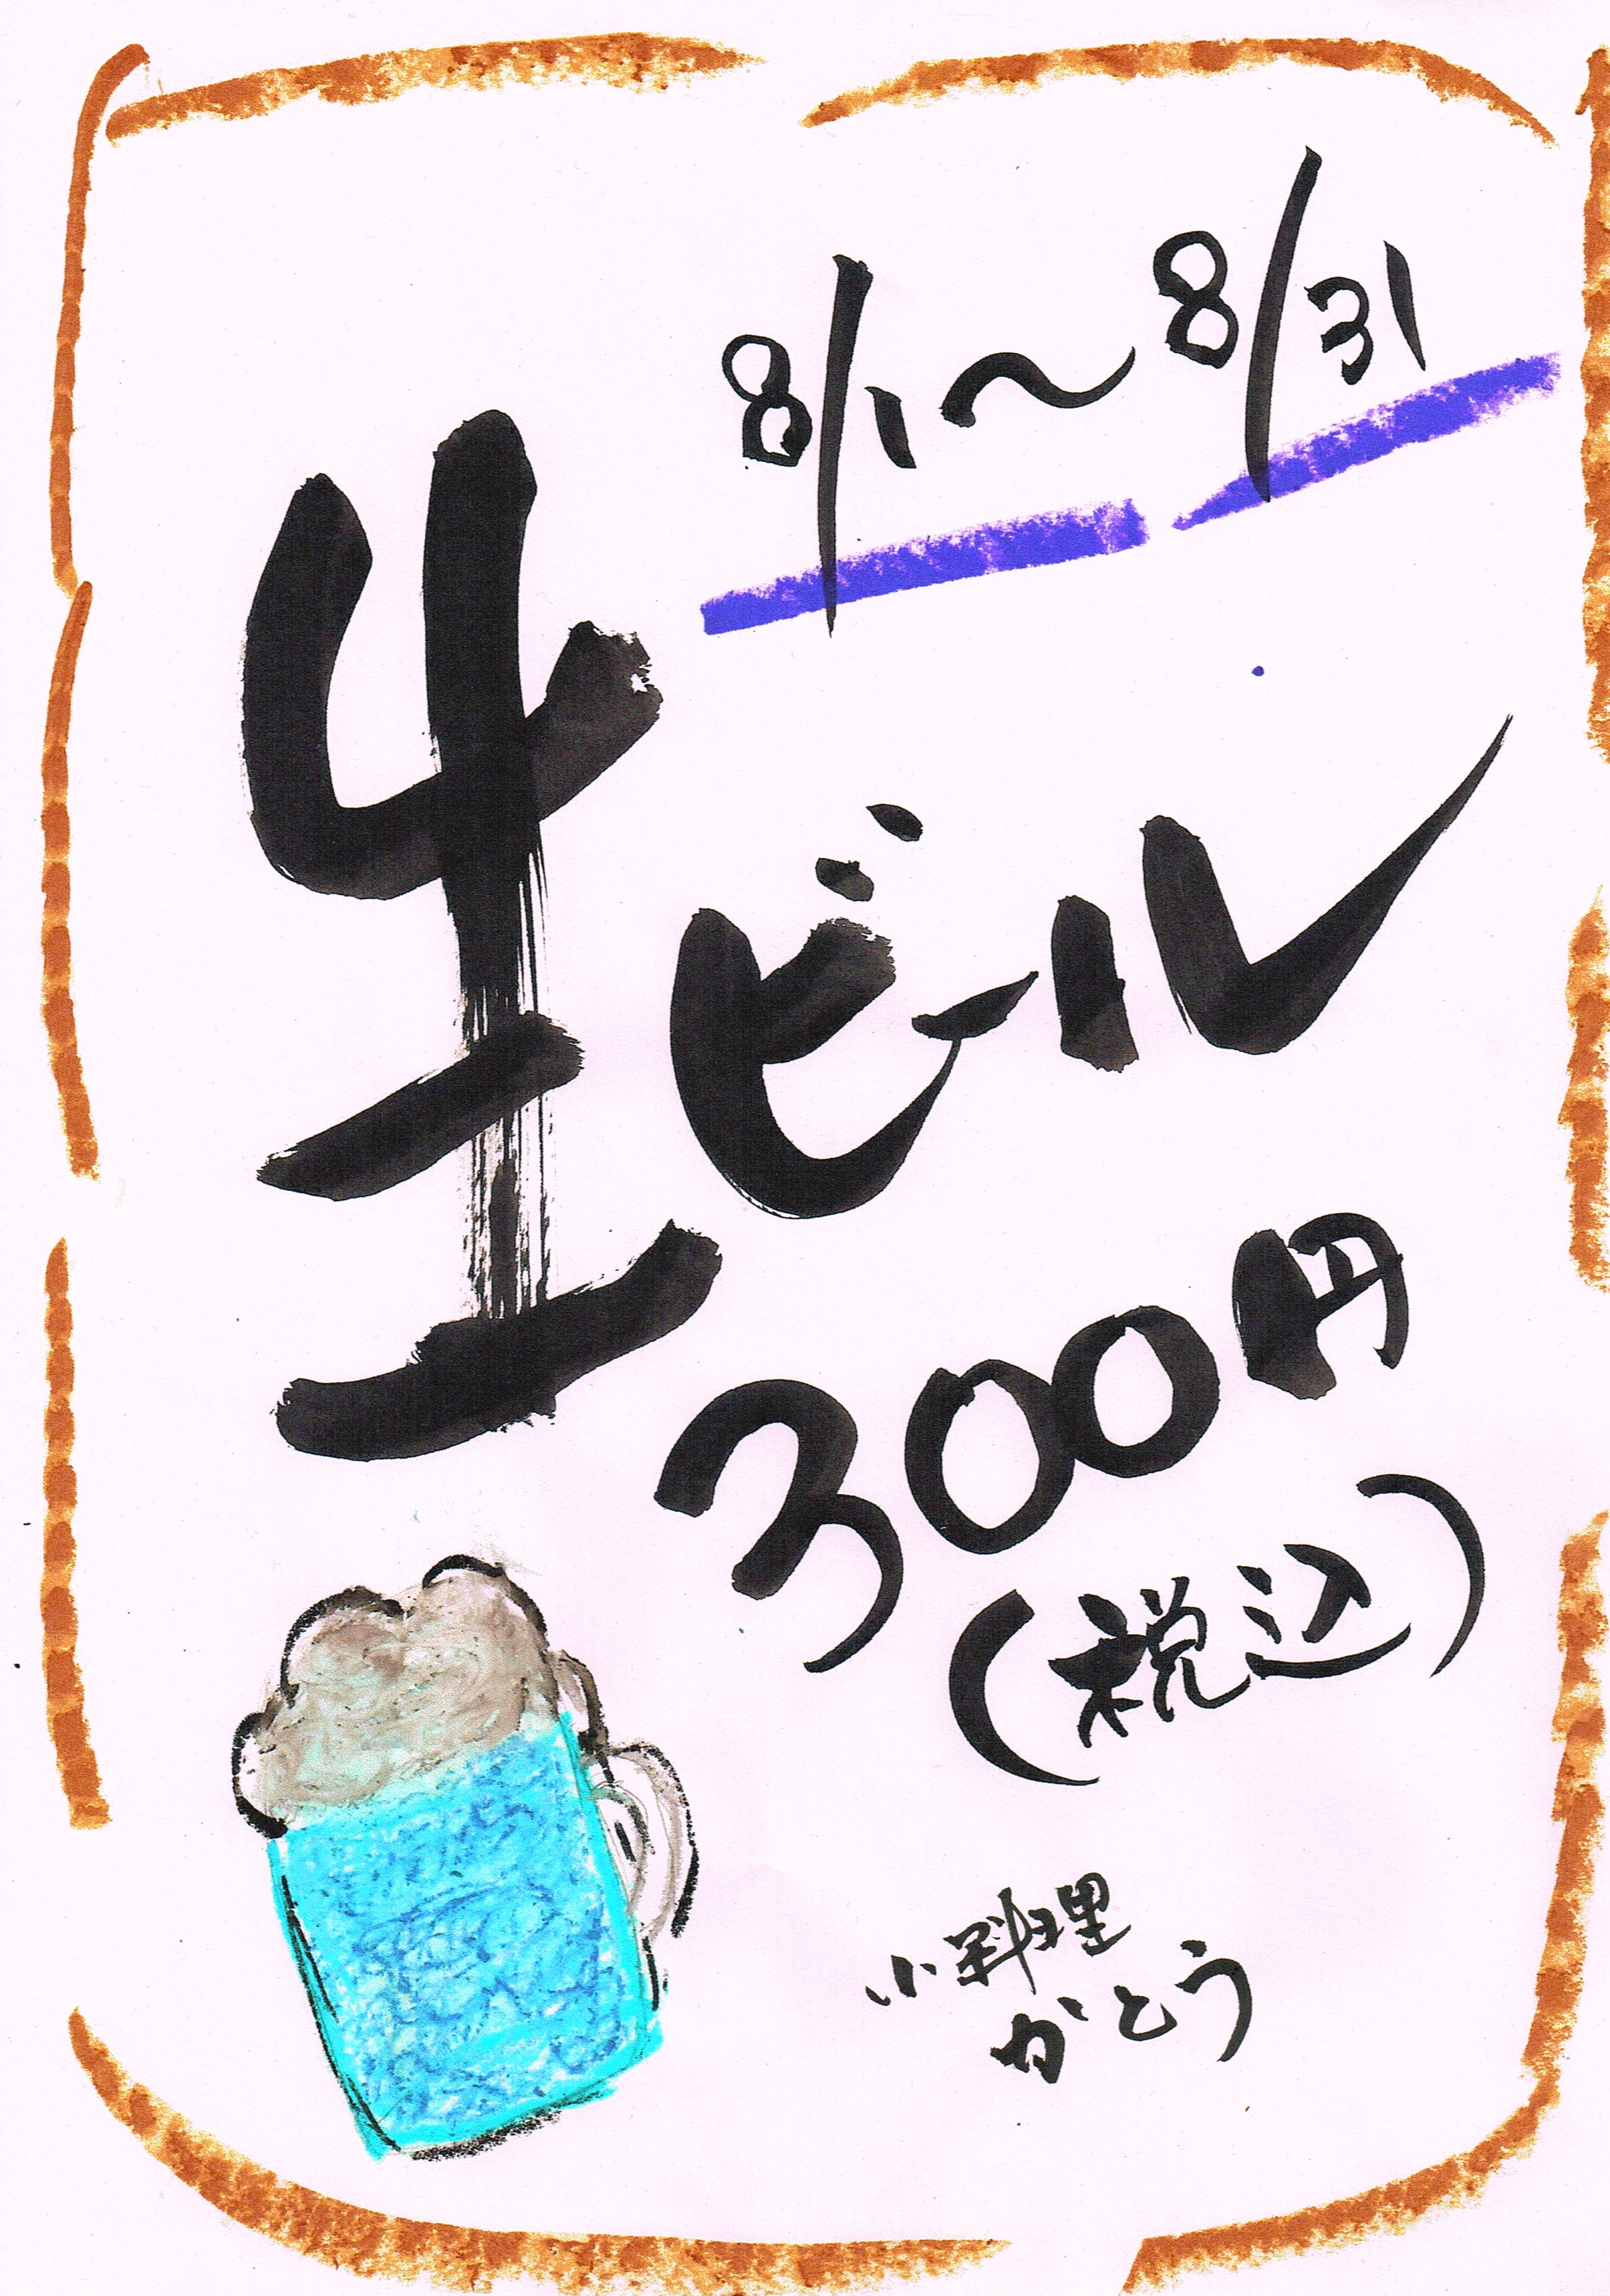 8/1〜8/31
生ビール
300円
(税込)
小料理
かとう